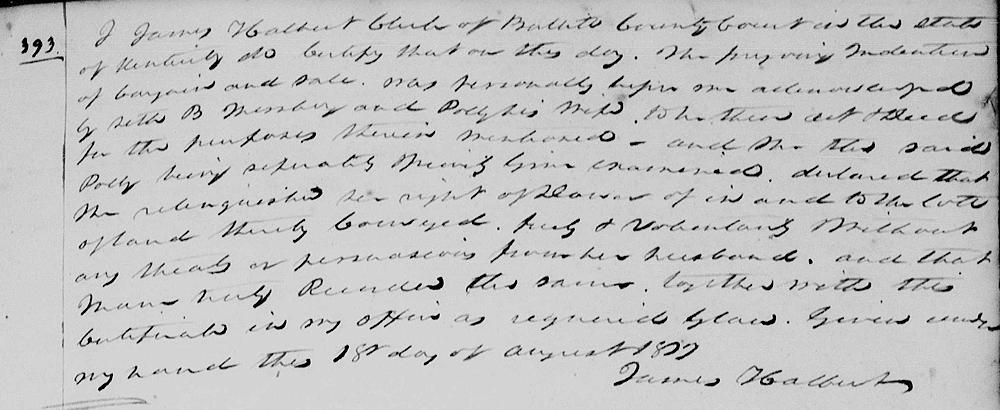 393.
I James Halbert Clerk of Bullitt County Court in the state
of Kentucky do Certify that on this day. The forgoing Indenture
of bargain and sale. was personally before me acknowledged
by Seth B and Polly his wife. to be their act & Deed
for the purposes therein mentioned - and She the said
Polly being seperately & privily by me examined. declared that
She relinquished her right of Dower of in and to the lotts
of land thereby Conveyed. freely & Voluntarily Without
any threats or persuasions from her husband. and that
I have truly Recorded the same. together with this
Certificate in my office as required by law. Given under
my hand this day of August
James Halbert